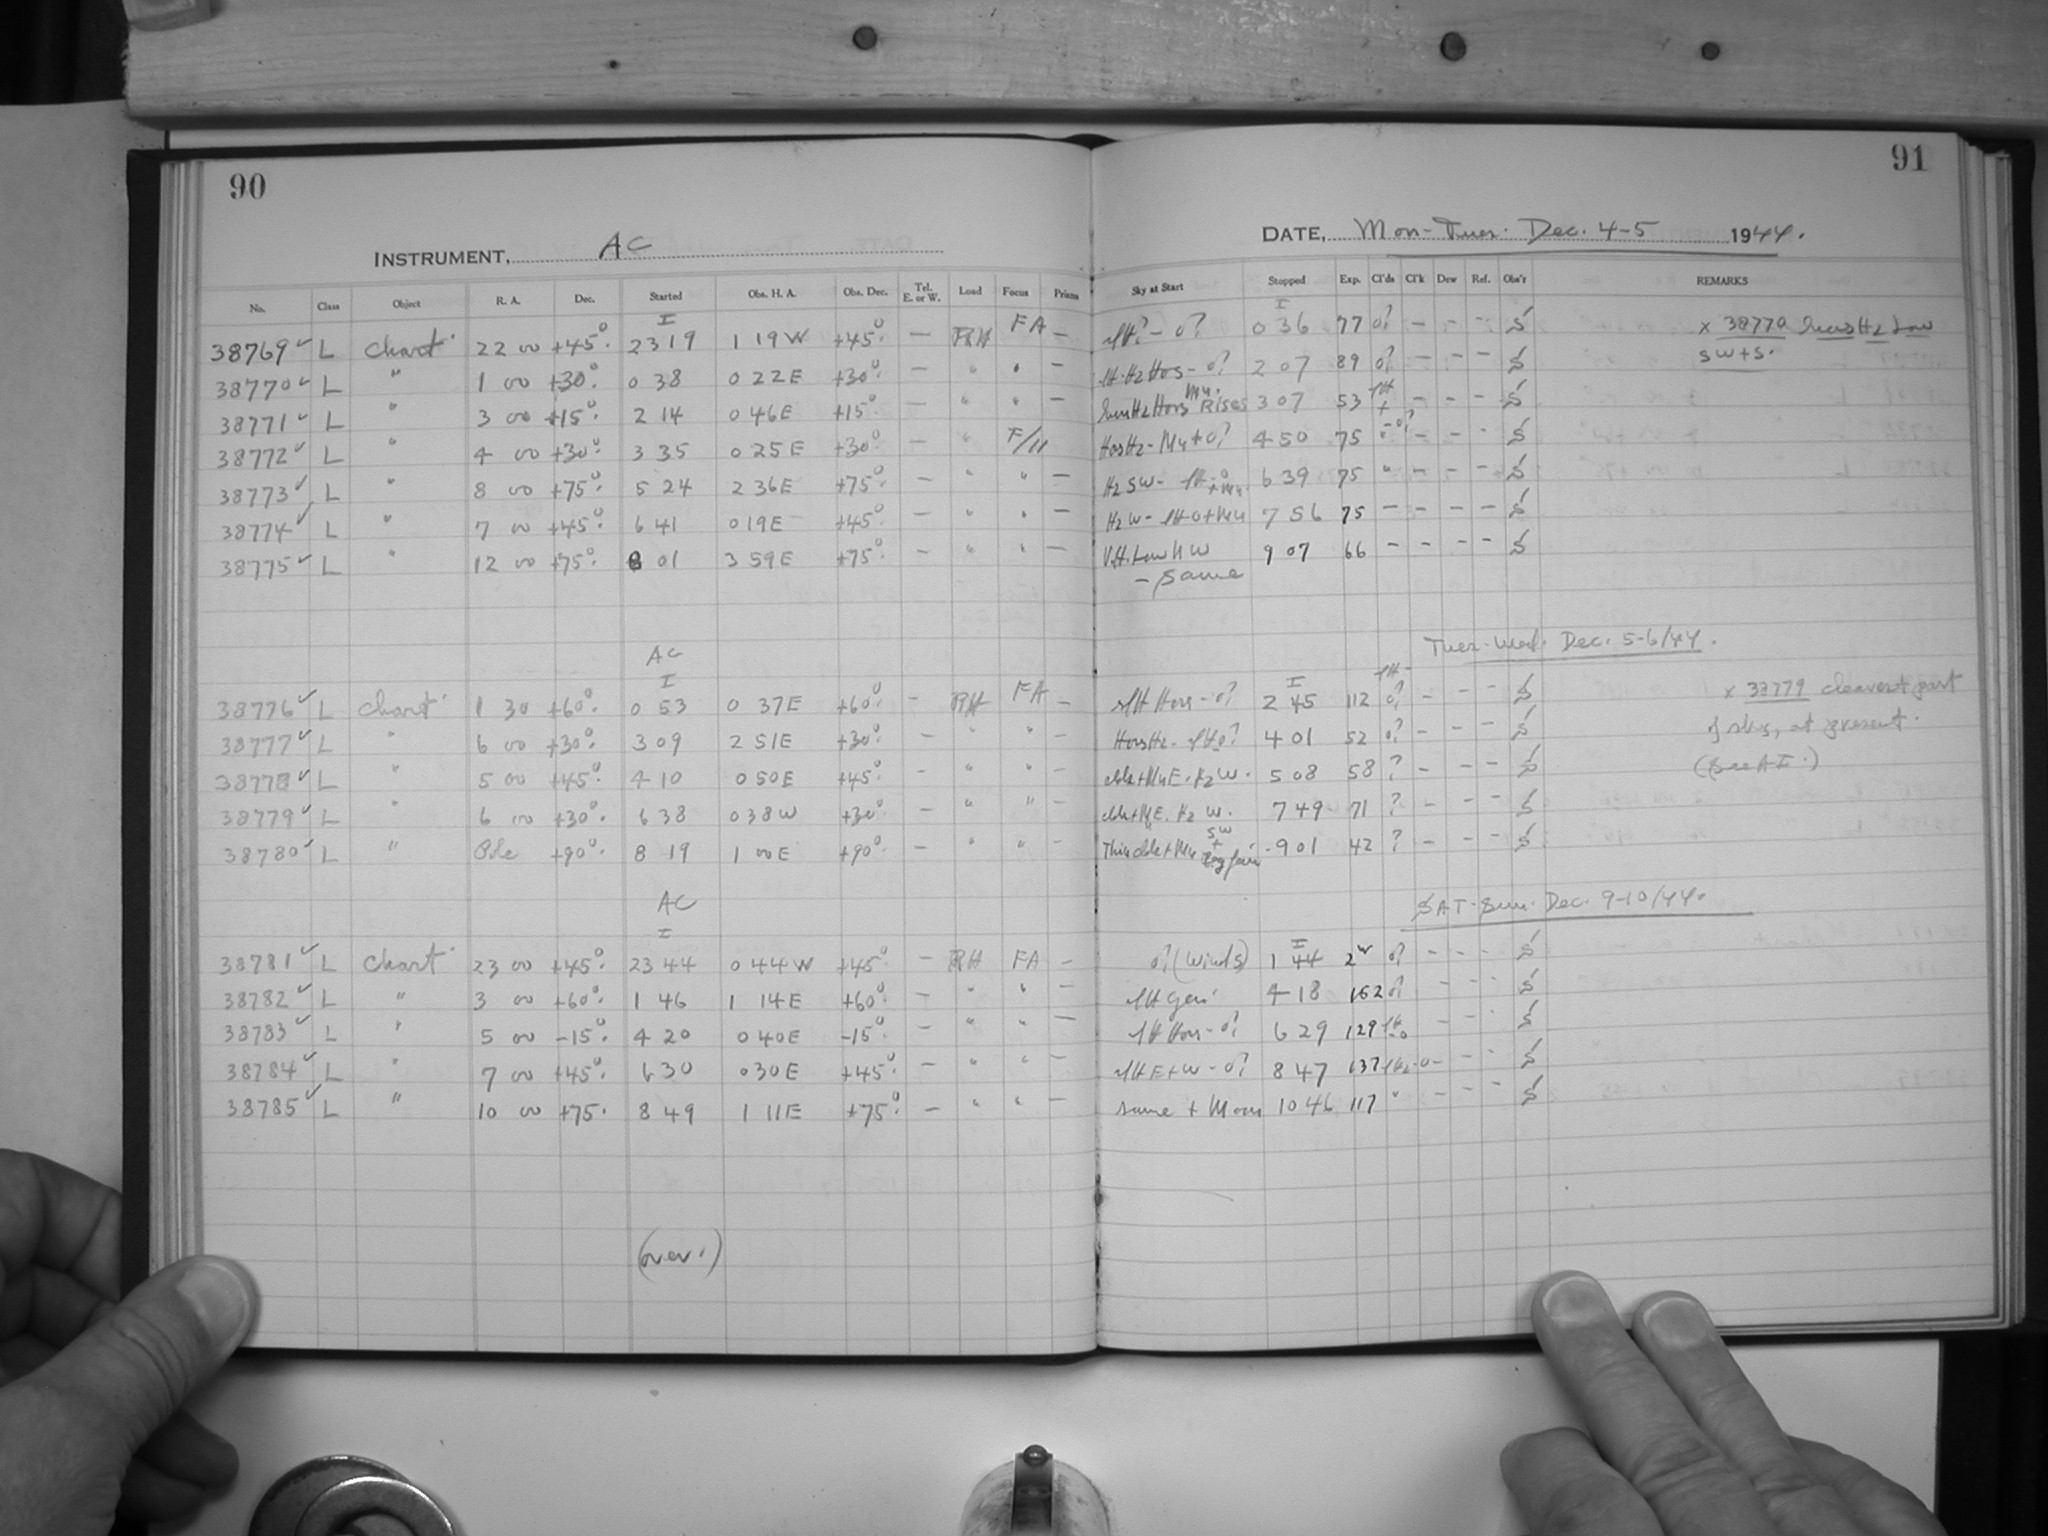 90
INSTRUMENT, AC
No. Class Object R. A. Dec. Started Obs. H. A. Obs. Dec. Tel. E. or W. Load Focus Prisms
I
38769 ✓ L Chart 22 00 +45° 23 19 1 19 W +45° — RH FA —
38770 ✓ L " 1 00 +30° 0 38 0 22 E +30° — " " —
38771 ✓ L " 3 00 +15° 2 14 0 46 E +15° — " " —
38772 ✓ L " 4 00 +30° 3 35 0 25 E +30° — " F/11
38773 ✓ L " 8 00 +75° 5 24 2 36 E +75° — " " —
38774 ✓ L " 7 00 +45° 6 41 0 19 E +45° — " " —
38775 ✓ L " 12 00 +75° 8 01 3 59 E +75° — " " —
AC
I
38776 ✓ L Chart 1 30 +60° 0 53 0 37 E +60° — RH FA —
38777 ✓ L " 6 00 +30° 3 09 2 51 E +30° — " " —
38778 ✓ L " 5 00 +45° 4 10 0 50 E +45° — " " —
38779 ✓ L " 6 00 +30° 6 38 0 38 W +30° — " " —
38780 ✓ L " Pole +90° 8 19 1 00 E +90° — " " —
AC
I
38781 ✓ L Chart 23 00 +45° 23 44 0 44 W +45° — RH FA —
38782 ✓ L " 3 00 +60° 1 46 1 14 E +60° — " " —
38783 ✓ L " 5 00 -15° 4 20 0 40 E -15° — " " —
38784 ✓ L " 7 00 +45° 6 30 0 30 E +45° — " " —
38785 ✓ L " 10 00 +75 8 49 1 11 E +75° — " " —
(over.)
91
DATE, Mon-Tues. Dec. 4-5 1944.
Sky at Start Stopped Exp. Cl'ds Cl'k Dew Ref. Obs'r REMARKS
I
0 36 77 0? — — — S x 38770 Hz Low
SW + S.
Hz Hors - 0? 2 07 89 0? — — — S
Hz Hors Mn. Rises 3 07 53 — — — S
Hors Hz - Mn + 0? 4 50 75 — — — S
Hz SW - 6 39 75 " — — — S
Hz W - 7 56 75 — — — — S
Low NW 9 07 66 — — — — S
- same
Tues-Wed. Dec. 5-6/44.
I
Hors - 0? 2 45 112 0? — — — S x 38779 clearest part
Hors Hz - 4 01 52 0? — — — S of sky, at present.
+ Mn E. Hz W. 5 08 58 ? — — — S (See AI.)
Hz W. 7 49 71 ? — — — S
SW
Thin + Mn 9 01 42 ? — — — S
SAT-Sun. Dec. 9-10/44.
I
0? (Winds) 1 44 0? — — — S
4 18 152 0? — — — S
Hors - 0? 6 29 129 — — — S
E + W - 0? 8 47 137 — — — S
same + Moon 10 46 117 " — — — S